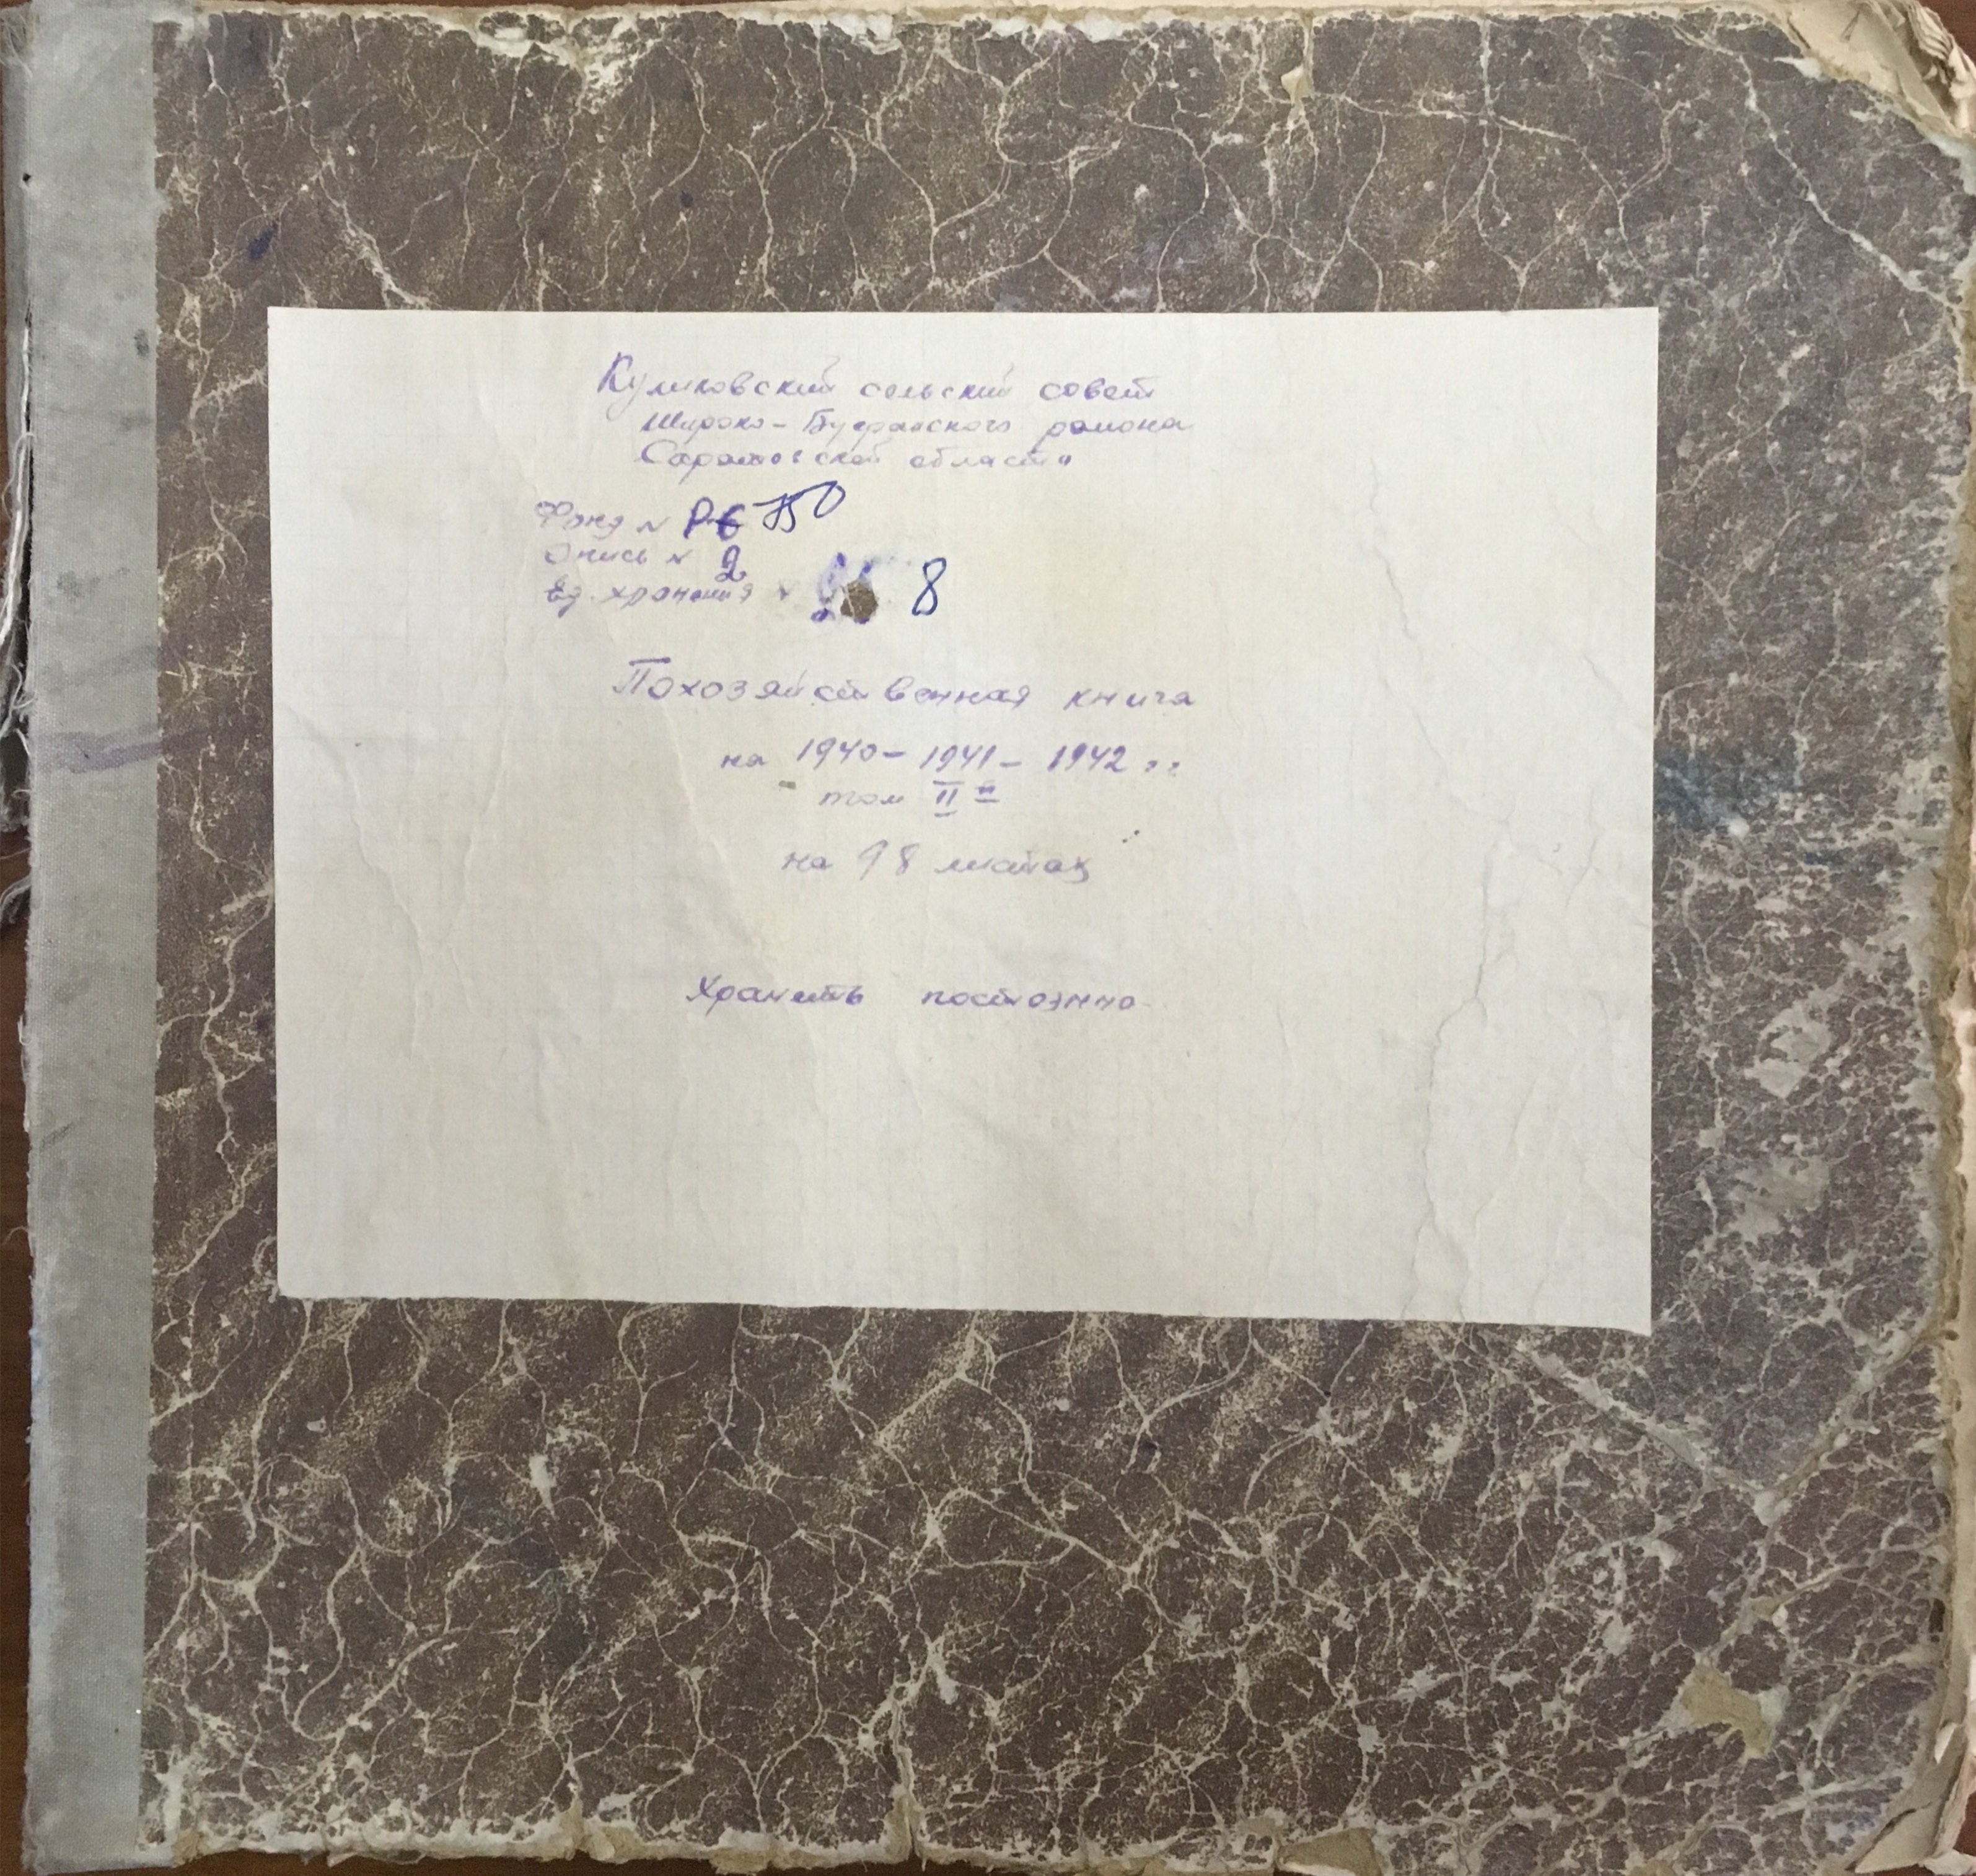 Куликовский сельский совет
Широко-Буеракского района
Саратовской области
Фонд № Р-6750
Опись № 2
Ед. хранения № 8
Похозяйственная книга
на 1940- 1941- 1942 гг
том II
на 98 листах
Хранить постоянно